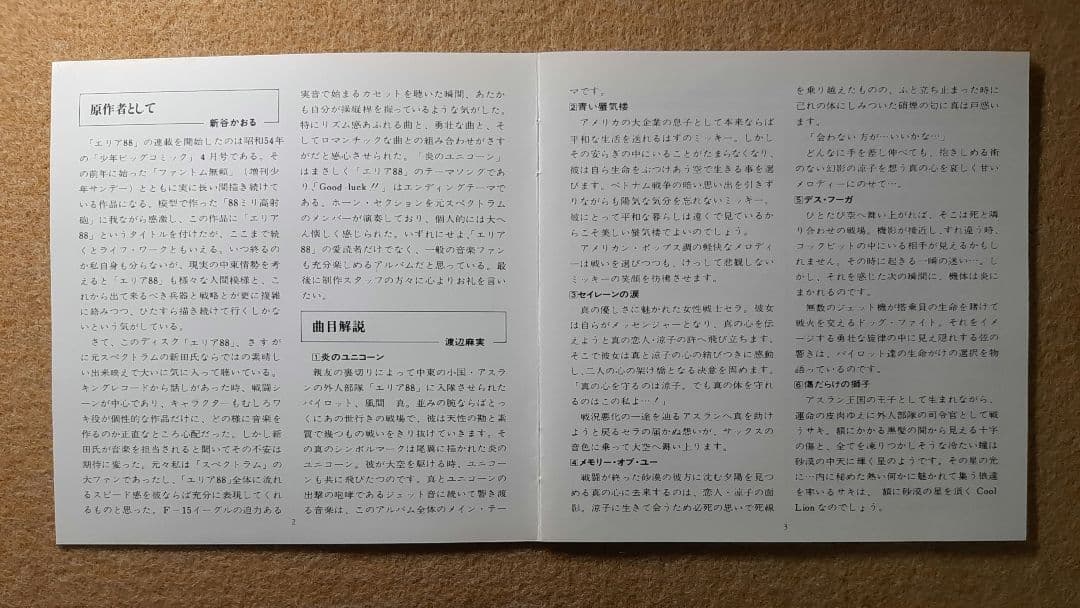 原作者として
新谷かおる
「エリア88」の連載を開始したのは昭和54年
の「少年ビッグコミック」4月号である。そ
の前年に始った「ファントム無頼」（増刊少
年サンデー）とともに実に長い間描き続けて
いる作品になる。模型で作った「88ミリ高射
砲」に我ながら感激し、この作品に「エリア
88」というタイトルを付けたが、ここまで続
くとライフ・ワークともいえる。いつ終るの
か私自身も分らないが、現実の中東情勢を考
えると「エリア88」も様々な人間模様と、こ
れから出て来るべき兵器と戦略とが更に複雑
に絡みつつ、ひたすら描き続けて行くしかな
いという気がしている。
さて、このディスク「エリア88」、さすが
に元スペクトラムの新田氏ならではの素晴し
い出来映えで大いに気に入って聴いている。
キングレコードから話しがあった時、戦闘シー
ンが中心であり、キャラクターもむしろワ
キ役が個性的な作品だけに、どの様に音楽を
作るのか正直なところ心配だった。しかし新
田氏が音楽を担当されると聞いてその不安は
期待に変った。元々私は「スペクトラム」の
大ファンであったし、「エリア88」全体に流れ
るスピード感を彼ならば充分に表現してくれ
るものと思った。F-15イーグルの迫力ある
2
実音で始まるカセットを聴いた瞬間、あたか
も自分が操縦桿を握っているような気がした。
特にリズム感あふれる曲と、勇壮な曲と、そ
してロマンチックな曲との組み合わせがさす
がだと感心させられた。「炎のユニコーン」
はまさしく「エリア88」のテーマソングであ
り、「Good luck!!」はエンディングテーマで
ある。ホーン・セクションを元スペクトラム
のメンバーが演奏しており、個人的には大へ
ん懐しく感じられた。いずれにせよ、「エリア
88」の愛読者だけでなく、一般の音楽ファン
も充分楽しめるアルバムだと思っている。最
後に制作スタッフの方々に心よりお礼を言い
たい。
曲目解説
渡辺麻実
①炎のユニコーン
親友の裏切りによって中東の小国・アスラ
ンの外人部隊「エリア88」に入隊させられた
パイロット、風間 真。並みの腕ならばとっ
くにあの世行きの戦場で、彼は天性の勘と素
質で幾つもの戦いをきり抜けていきます。そ
の真のシンボルマークは尾翼に描かれた炎の
ユニコーン。彼が大空を駆ける時、ユニコー
ンも共に飛びたつのです。真とユニコーンの
出撃の咆哮であるジェット音に続いて響き渡
る音楽は、このアルバム全体のメイン・テー
マです。
②青い蜃気楼
アメリカの大企業の息子として本来ならば
平和な生活を送れるはずのミッキー。しかし
その安らぎの中にいることがたまらなくなり、
彼は自ら生命をぶつけあう空で生きる事を選
びます。ベトナム戦争の暗い思い出を引きず
りながらも陽気な気分を忘れないミッキー。
彼にとって平和な暮らしは遠くで見ているか
らこそ美しい蜃気楼でよいのでしょう。
アメリカン・ポップス調の軽快なメロディ
ーは戦いを選びつつも、けっして悲観しない
ミッキーの笑顔を彷彿させます。
③セイレーンの涙
真の優しさに魅かれた女性戦士セラ。彼女
は自らがメッセンジャーとなり、真の心を伝
えようと真の恋人・涼子の許へ飛び立ちます。
そこで彼女は真と涼子の心の結びつきに感動
し、二人の心の架け橋となる決意を固めます。
「真の心を守るのは涼子。でも真の体を守れ
るのはこの私よ…！」
戦況悪化の一途を辿るアスランへ真を助け
ようと戻るセラの届かぬ想いが、サックスの
音色に乗って大空へ舞い上ります。
④メモリー・オブ・ユー
戦闘が終った砂漠の彼方に沈む夕陽を見つ
める真の心に去来するのは、恋人・涼子の面
影。涼子に生きて会うため必死の思いで死線
を乗り越えたものの、ふと立ち止まった時に
己れの体にしみついた硝煙の匂に真は戸惑い
ます。
「会わない方が…いいかな…」
どんなに手を差し伸べても、抱きしめる術
のない幻影の涼子を想う真の心を哀しく甘い
メロディーにのせて…。
⑤デス・フーガ
ひとたび空へ舞い上がれば、そこは死と隣
り合わせの戦場。機影が接近し、すれ違う時、
コックピットの中にいる相手が見えるかもし
れません。その時に起きる一瞬の迷い…。し
かし、それを感じた次の瞬間に、機体は炎に
まかれるのです。
無数のジェット機が搭乗員の生命を賭けて
戦火を交えるドッグ・ファイト。それをイメ
ージする勇壮な旋律の中に見え隠れする弦の
響きは、パイロット達の生命がけの選択を物
語っているのです。
⑥傷だらけの獅子
アスラン王国の王子として生まれながら、
運命の皮肉ゆえに外人部隊の司令官として戦
うサキ。額にかかる黒髪の間から見える十字
の傷と、全てを凍りつかしそうな冷たい瞳は
砂漠の中天に輝く星のようです。その星の光
に…内に秘めた熱い何かに魅かれて集う狼達
を率いるサキは、額に砂漠の星を頂く Cool
Lion なのでしょう。
3